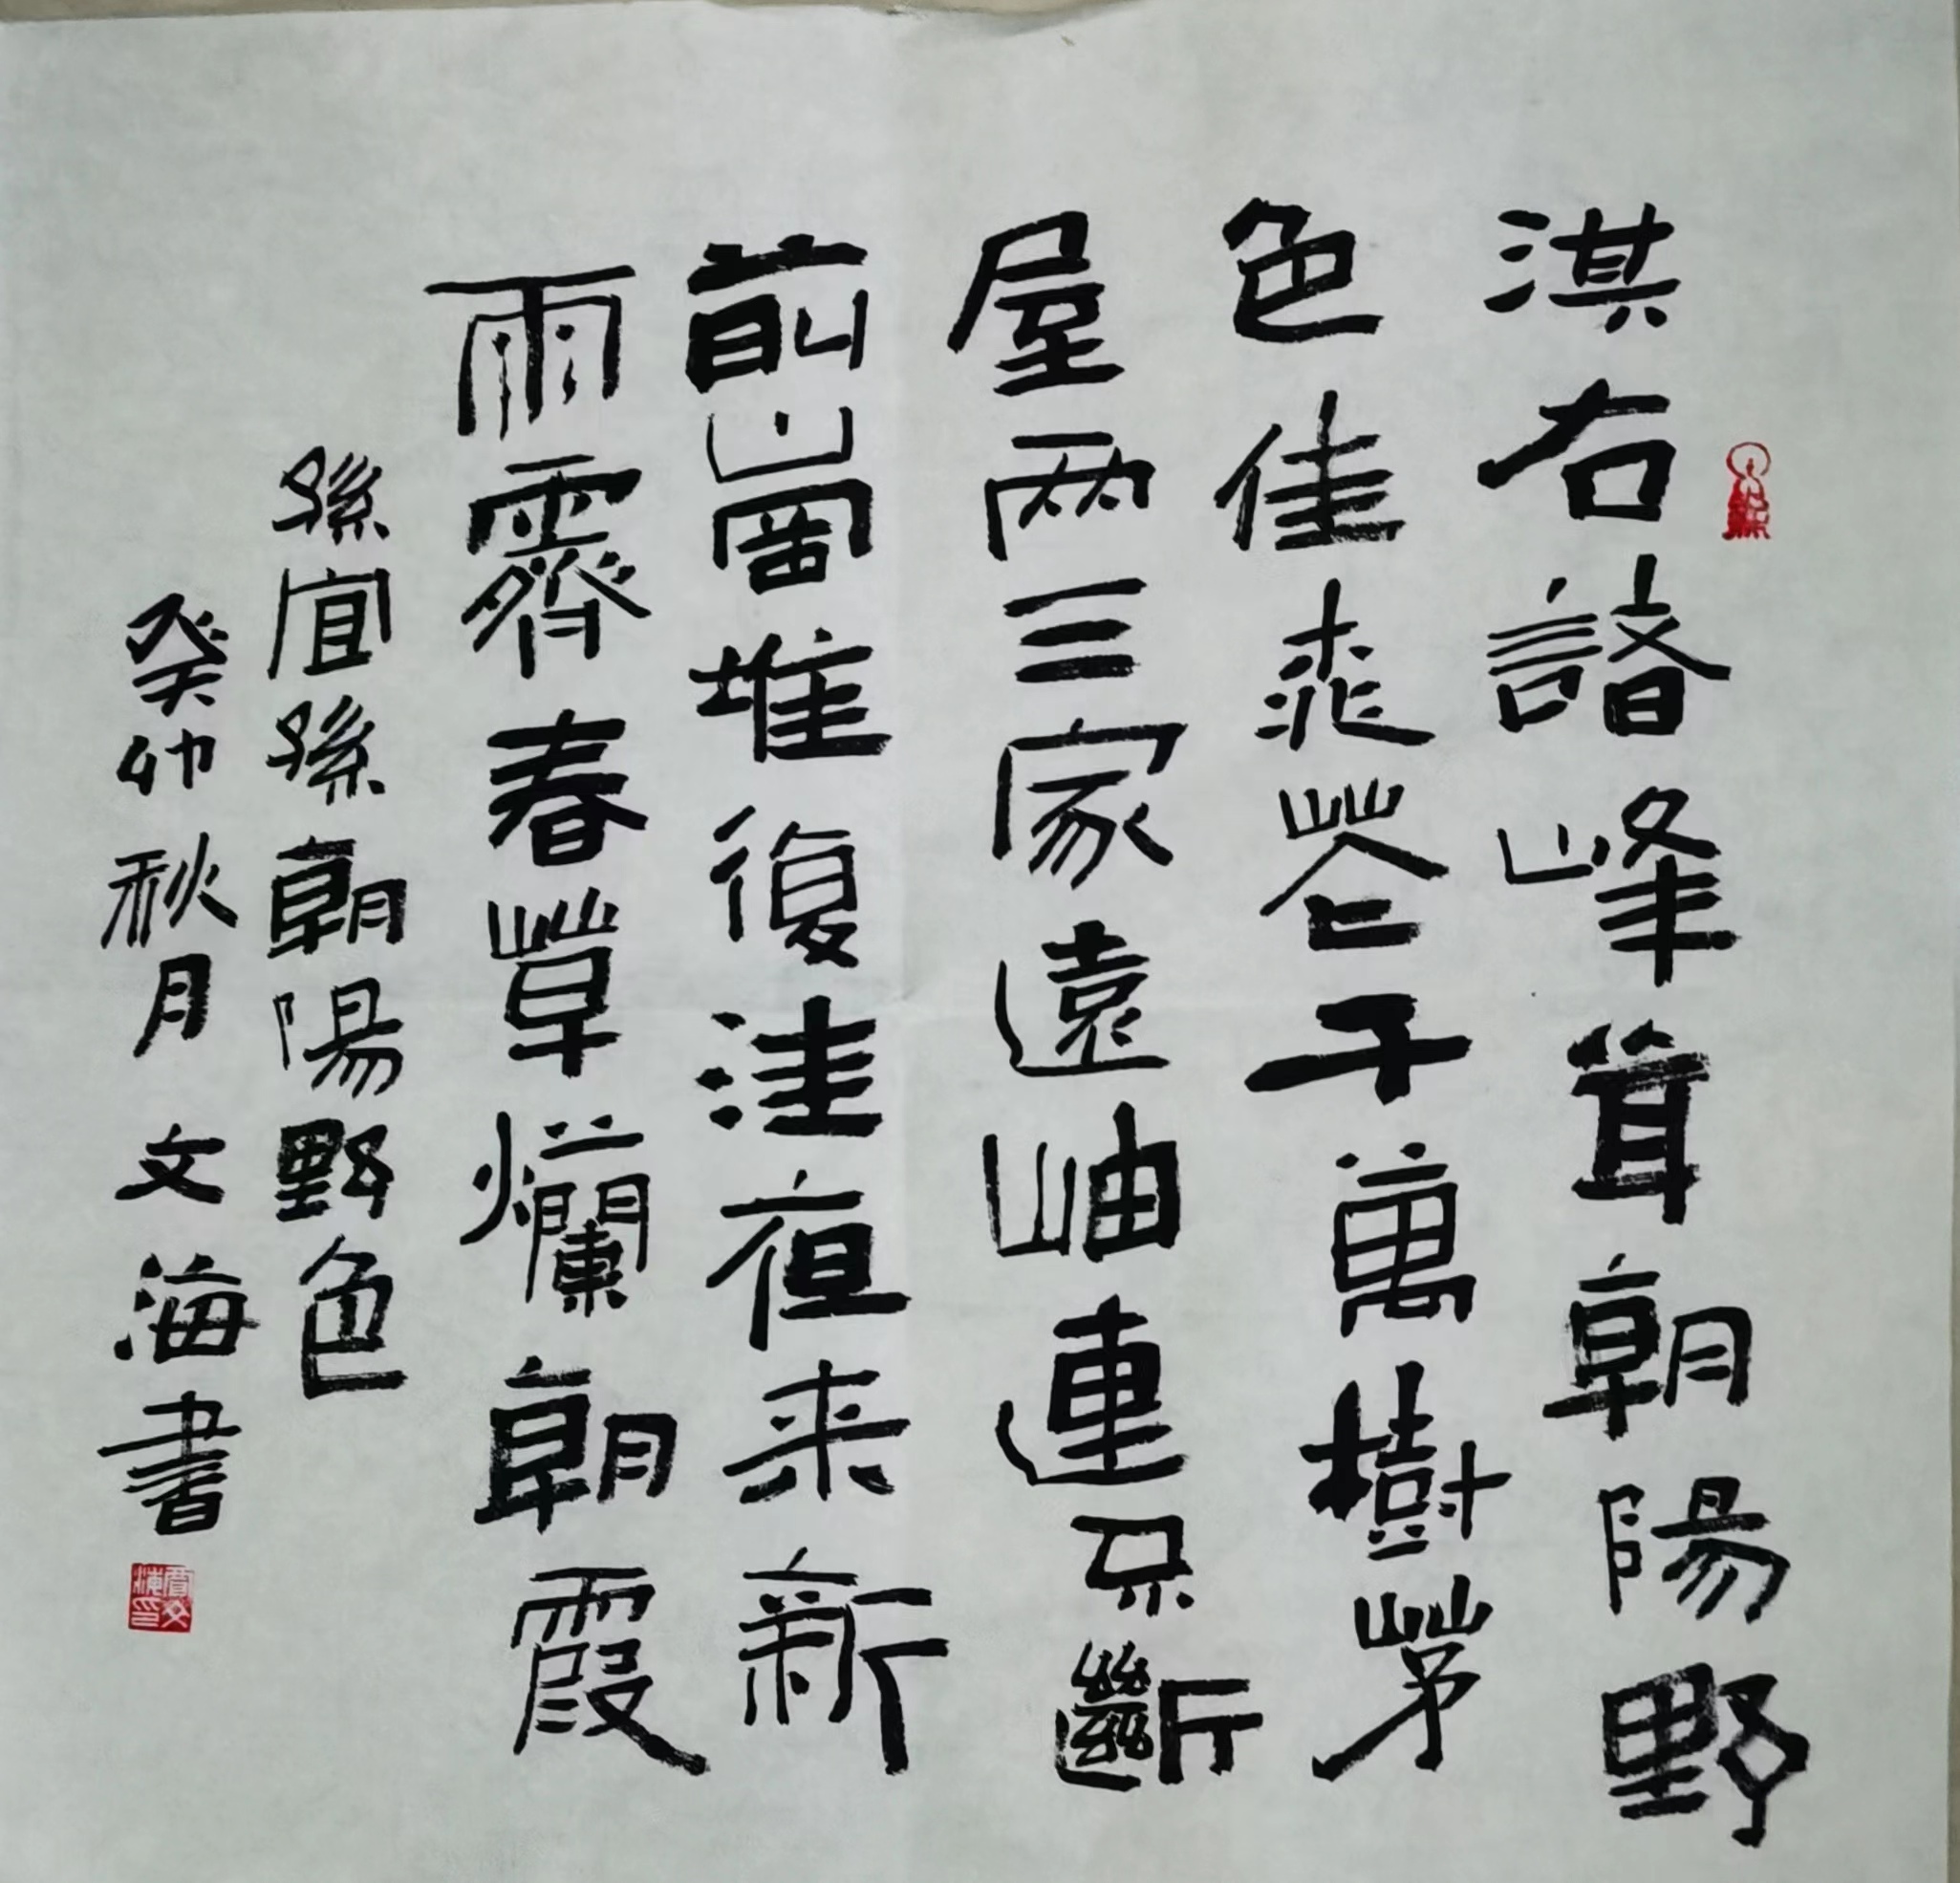 淇右諸峰首朝陽野
色佳桃花千萬樹茅
屋两三家遠岫連不斷
前崗堆復洼夜来新
雨霽春草爛朝霞
孫宜孫朝陽野色
癸卯秋月文海書
賈文海印